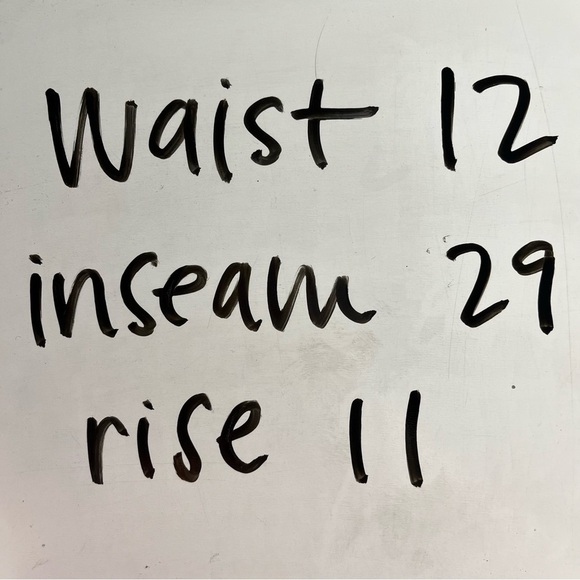 waist 12
inseam 29
rise 11